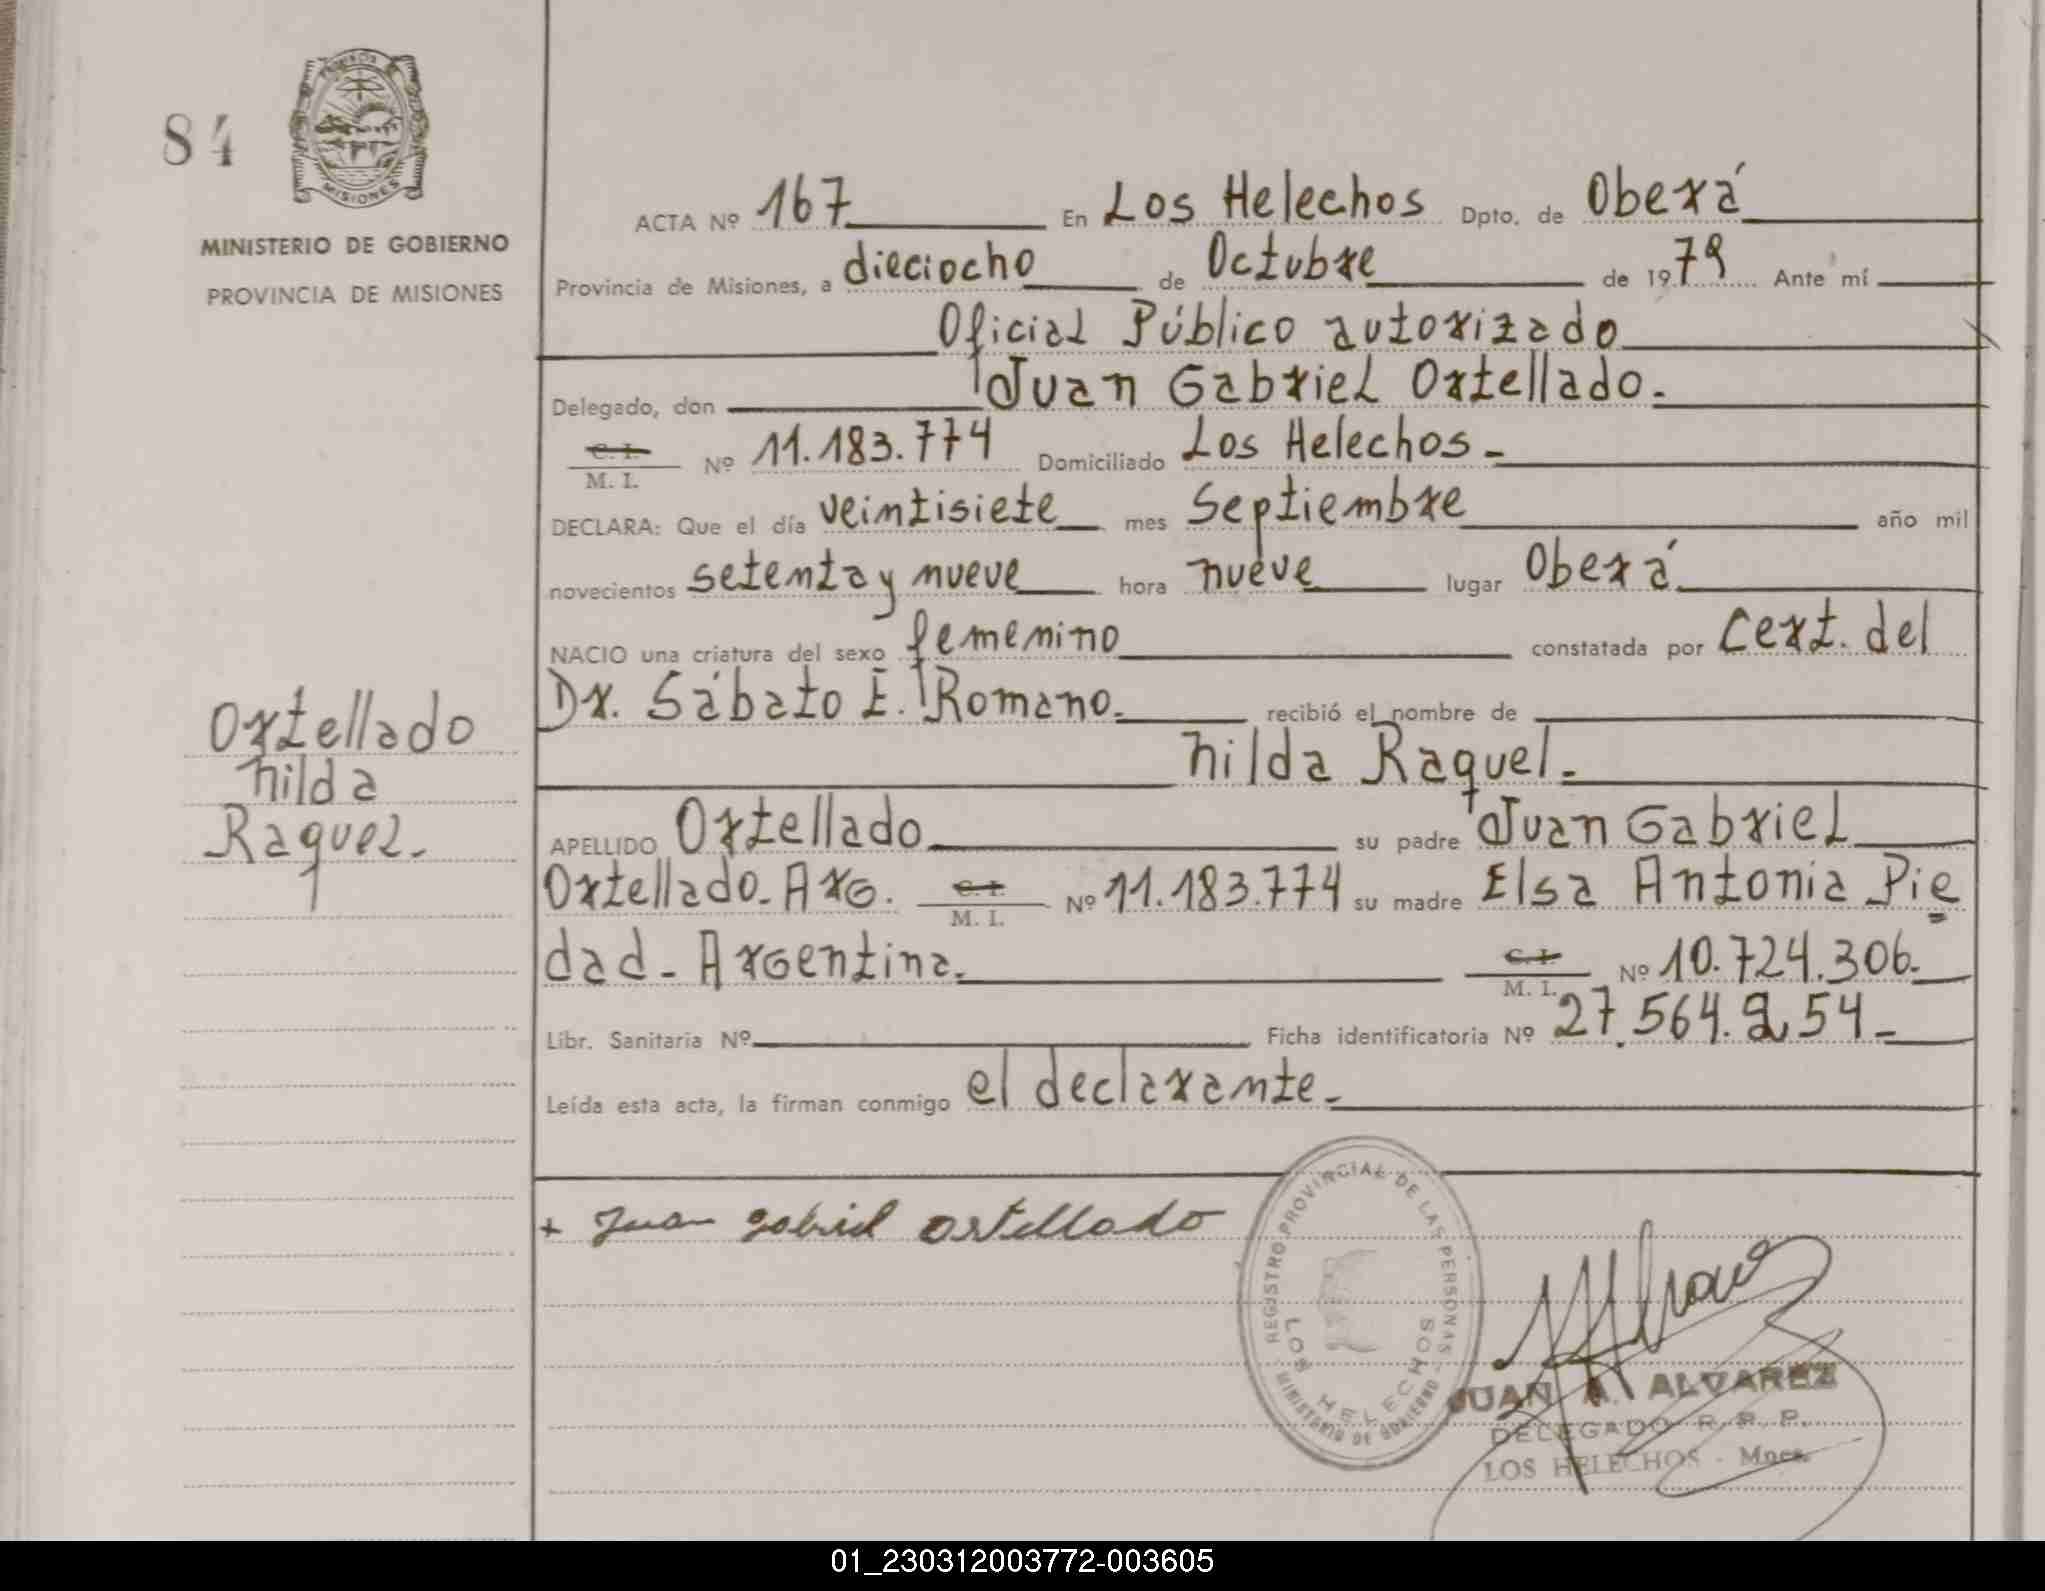 84
MISIONES
MINISTERIO DE GOBIERNO
PROVINCIA DE MISIONES
Ortellado
Nilda
Raquel.
ACTA Nº 167 En Los Helechos Dpto. de Oberá
Provincia de Misiones, a dieciocho de Octubre de 1979 Ante mí
Oficial Público autorizado
Delegado, don Juan Gabriel Ortellado.
C. I. M. I. Nº 11.183.774 Domiciliado Los Helechos -
DECLARA: Que el día veintisiete mes Septiembre año mil
novecientos setenta y nueve hora nueve lugar Oberá
NACIO una criatura del sexo femenino constatada por Cert. del
Dr. Sábato E. Romano. recibió el nombre de
Nilda Raquel.
APELLIDO Ortellado su padre Juan Gabriel
Ortellado - Arg. C. I. M. I. Nº 11.183.774 su madre Elsa Antonia Pie
dad - Argentina. C. I. M. I. Nº 10.724.306.
Libr. Sanitaria Nº Ficha identificatoria Nº 27.564.254 -
Leída esta acta, la firman conmigo el declarante.
+ Juan Gabriel Ortellado
REGISTRO PROVINCIAL DE LAS PERSONAS
LOS HELECHOS
MINISTERIO DE GOBIERNO
JUAN A. ALVAREZ
DELEGADO R. P. P.
LOS HELECHOS - Mnes.
01_230312003772-003605